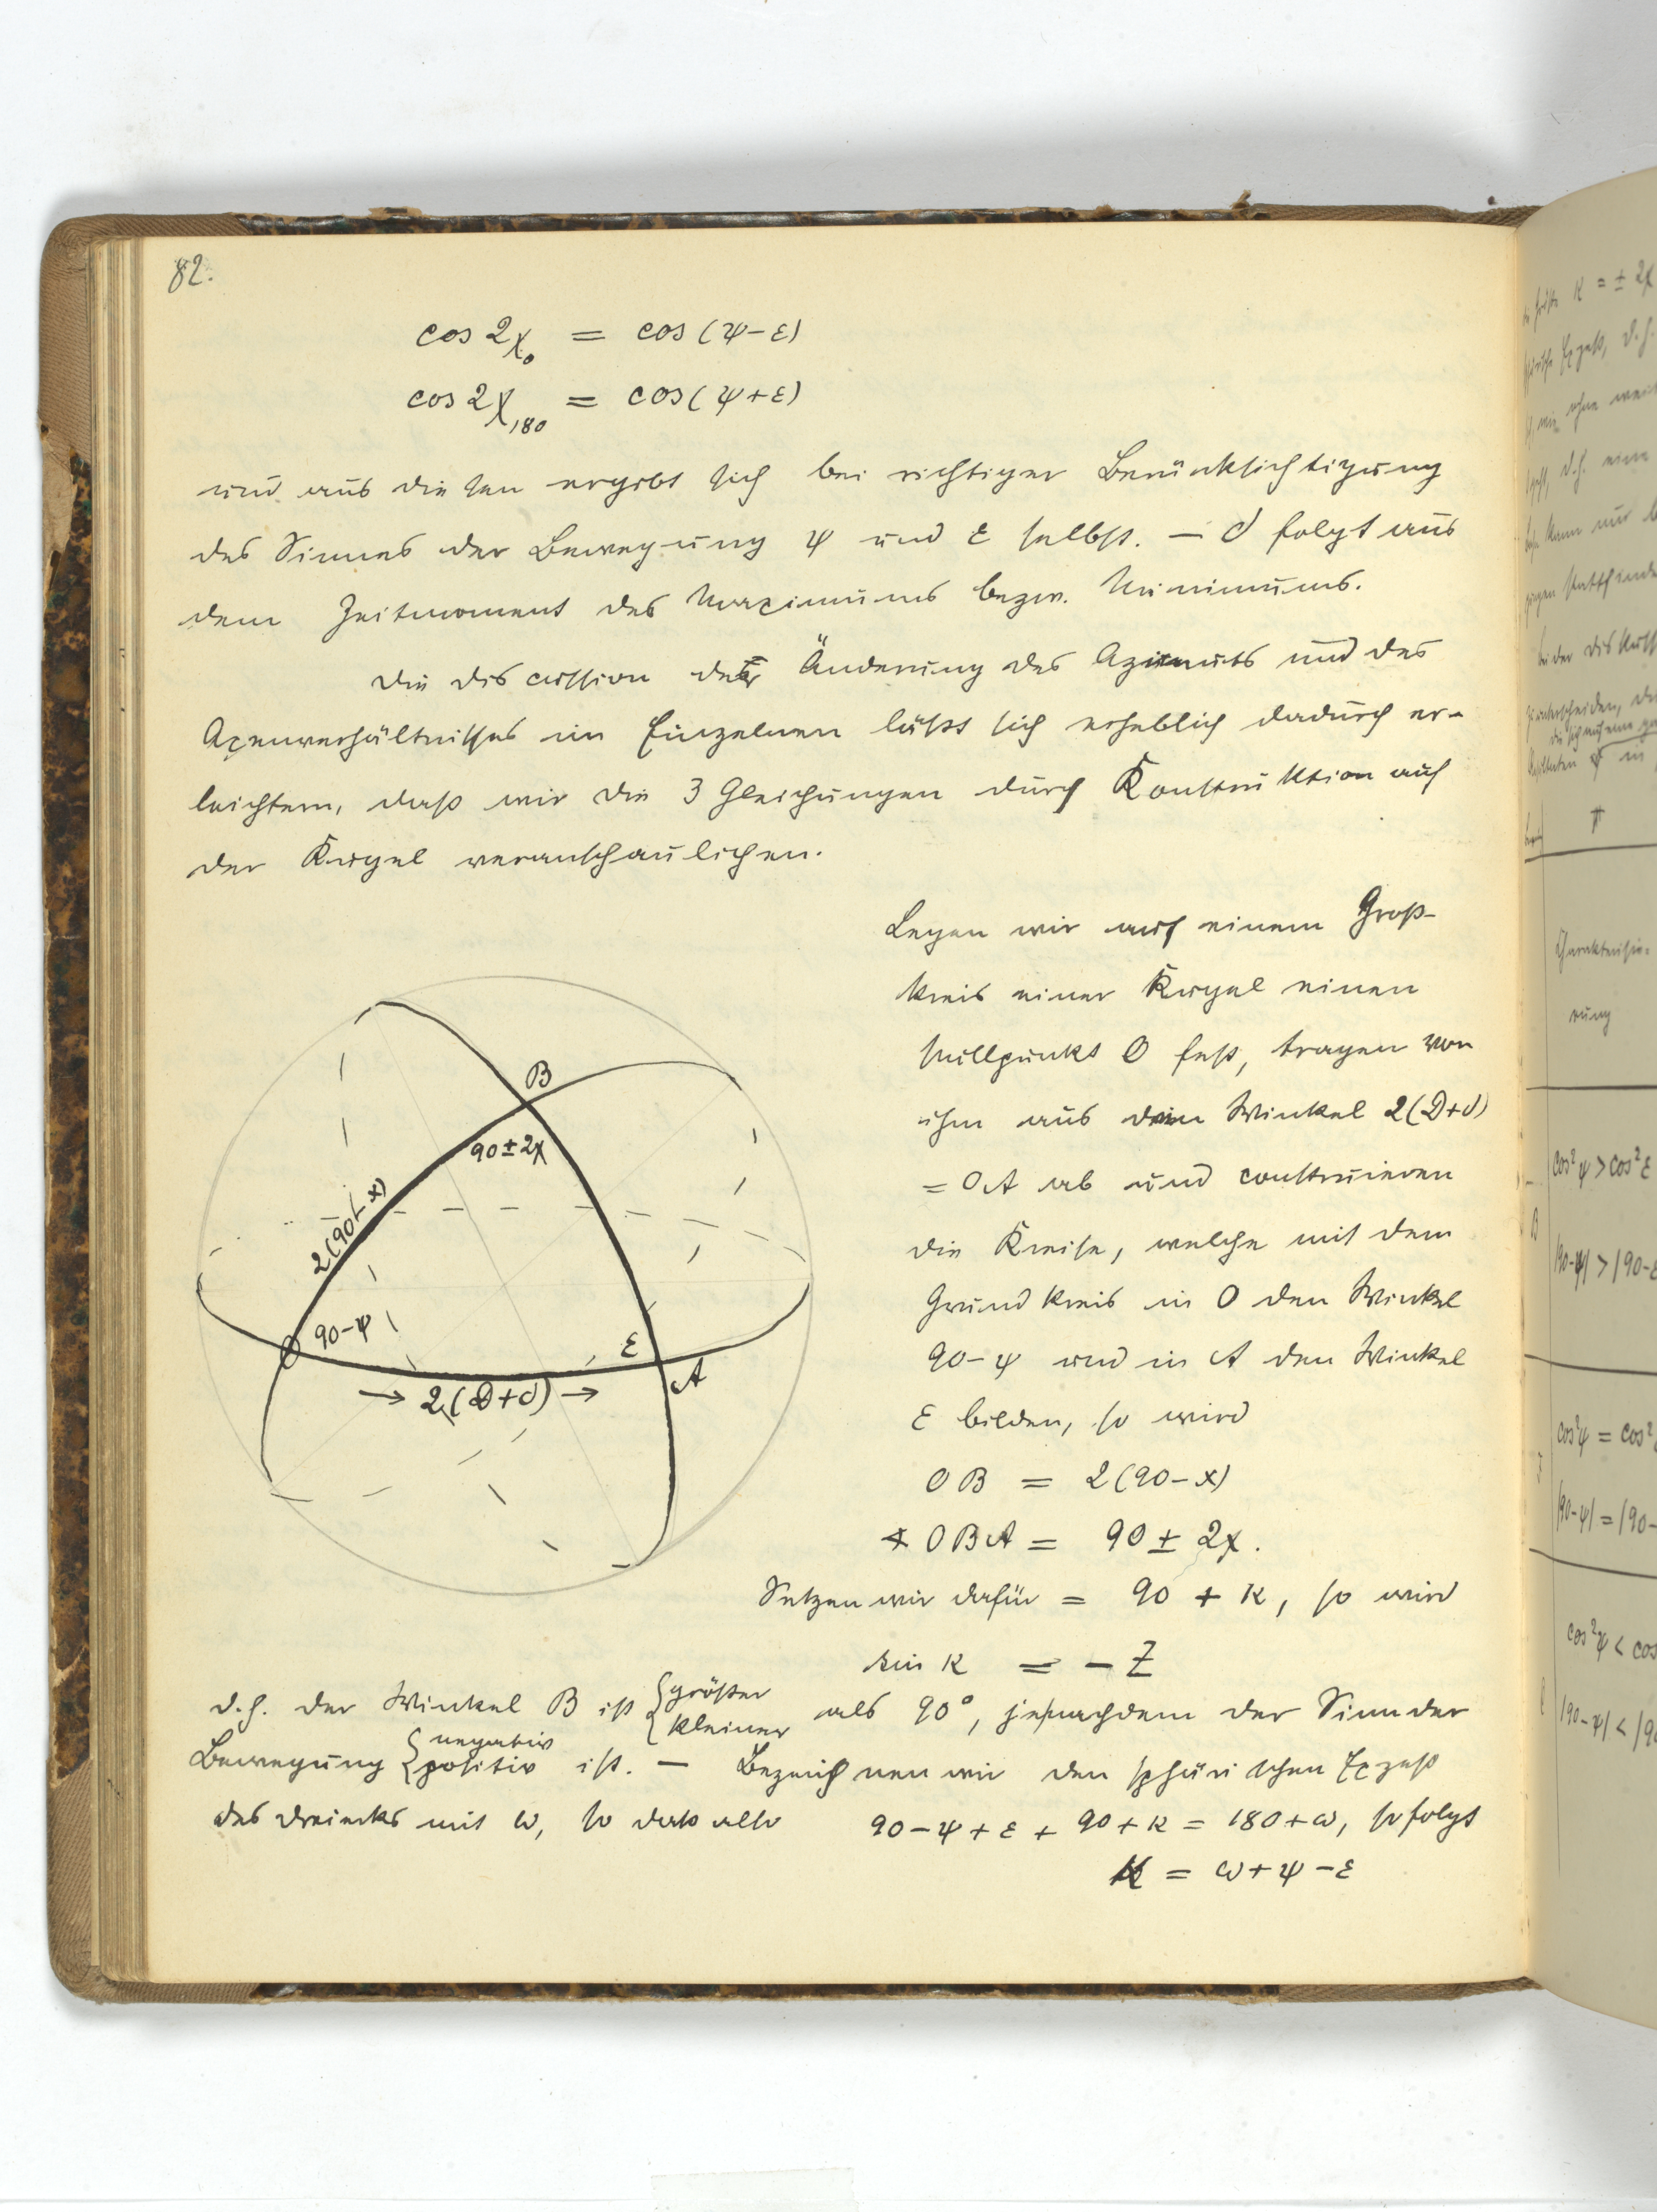 82.
cos 2χ₀ = cos (ψ-ε)
cos 2χ₁₈₀ = cos (ψ+ε)
und aus diesen ergibt sich bei richtiger Berücksichtigung
des Sinnes der Bewegung ψ und ε selbst. — δ folgt aus
dem Zeitmoment des Maximums bezw. Minimums.
Die Discussion der Änderung des Azimuts und des
Axenverhältnisses im Einzelnen läßt sich erheblich dadurch er-
leichtern, daß wir die 3 Gleichungen durch Konstruktion auf
der Kugel veranschaulichen.
Legen wir auf einem Groß-
kreis einer Kugel einen
Nullpunkt O fest, tragen von
ihm aus den Winkel 2(D+δ)
= OA ab und construieren
die Kreise, welche mit dem
Grundkreis in O den Winkel
90-ψ und in A den Winkel
ε bilden, so wird
OB = 2(90-x)
∢ OBA = 90 ± 2χ.
Setzen wir dafür = 90 + κ, so wird
sin κ = - Z
B
90±2χ
2(90-x)
O
90-ψ
ε
A
→ 2(D+δ) →
d.h. der Winkel B ist {größer
kleiner als 90°, jenachdem der Sinn der
Bewegung {negativ
positiv ist. — Bezeichnen wir den sphärischen Exzeß
des Dreiecks mit ω, so daß also 90-ψ+ε+90+κ = 180+ω, so folgt
κ = ω+ψ-ε
κ = ± 2χ
d.h.
π
Charakterisie-
rung
cos²ψ > cos²ε
|90-ψ| > |90-ε
cos²ψ = cos²
|90-ψ| = |90-
cos²ψ < cos
|90-ψ| < |90